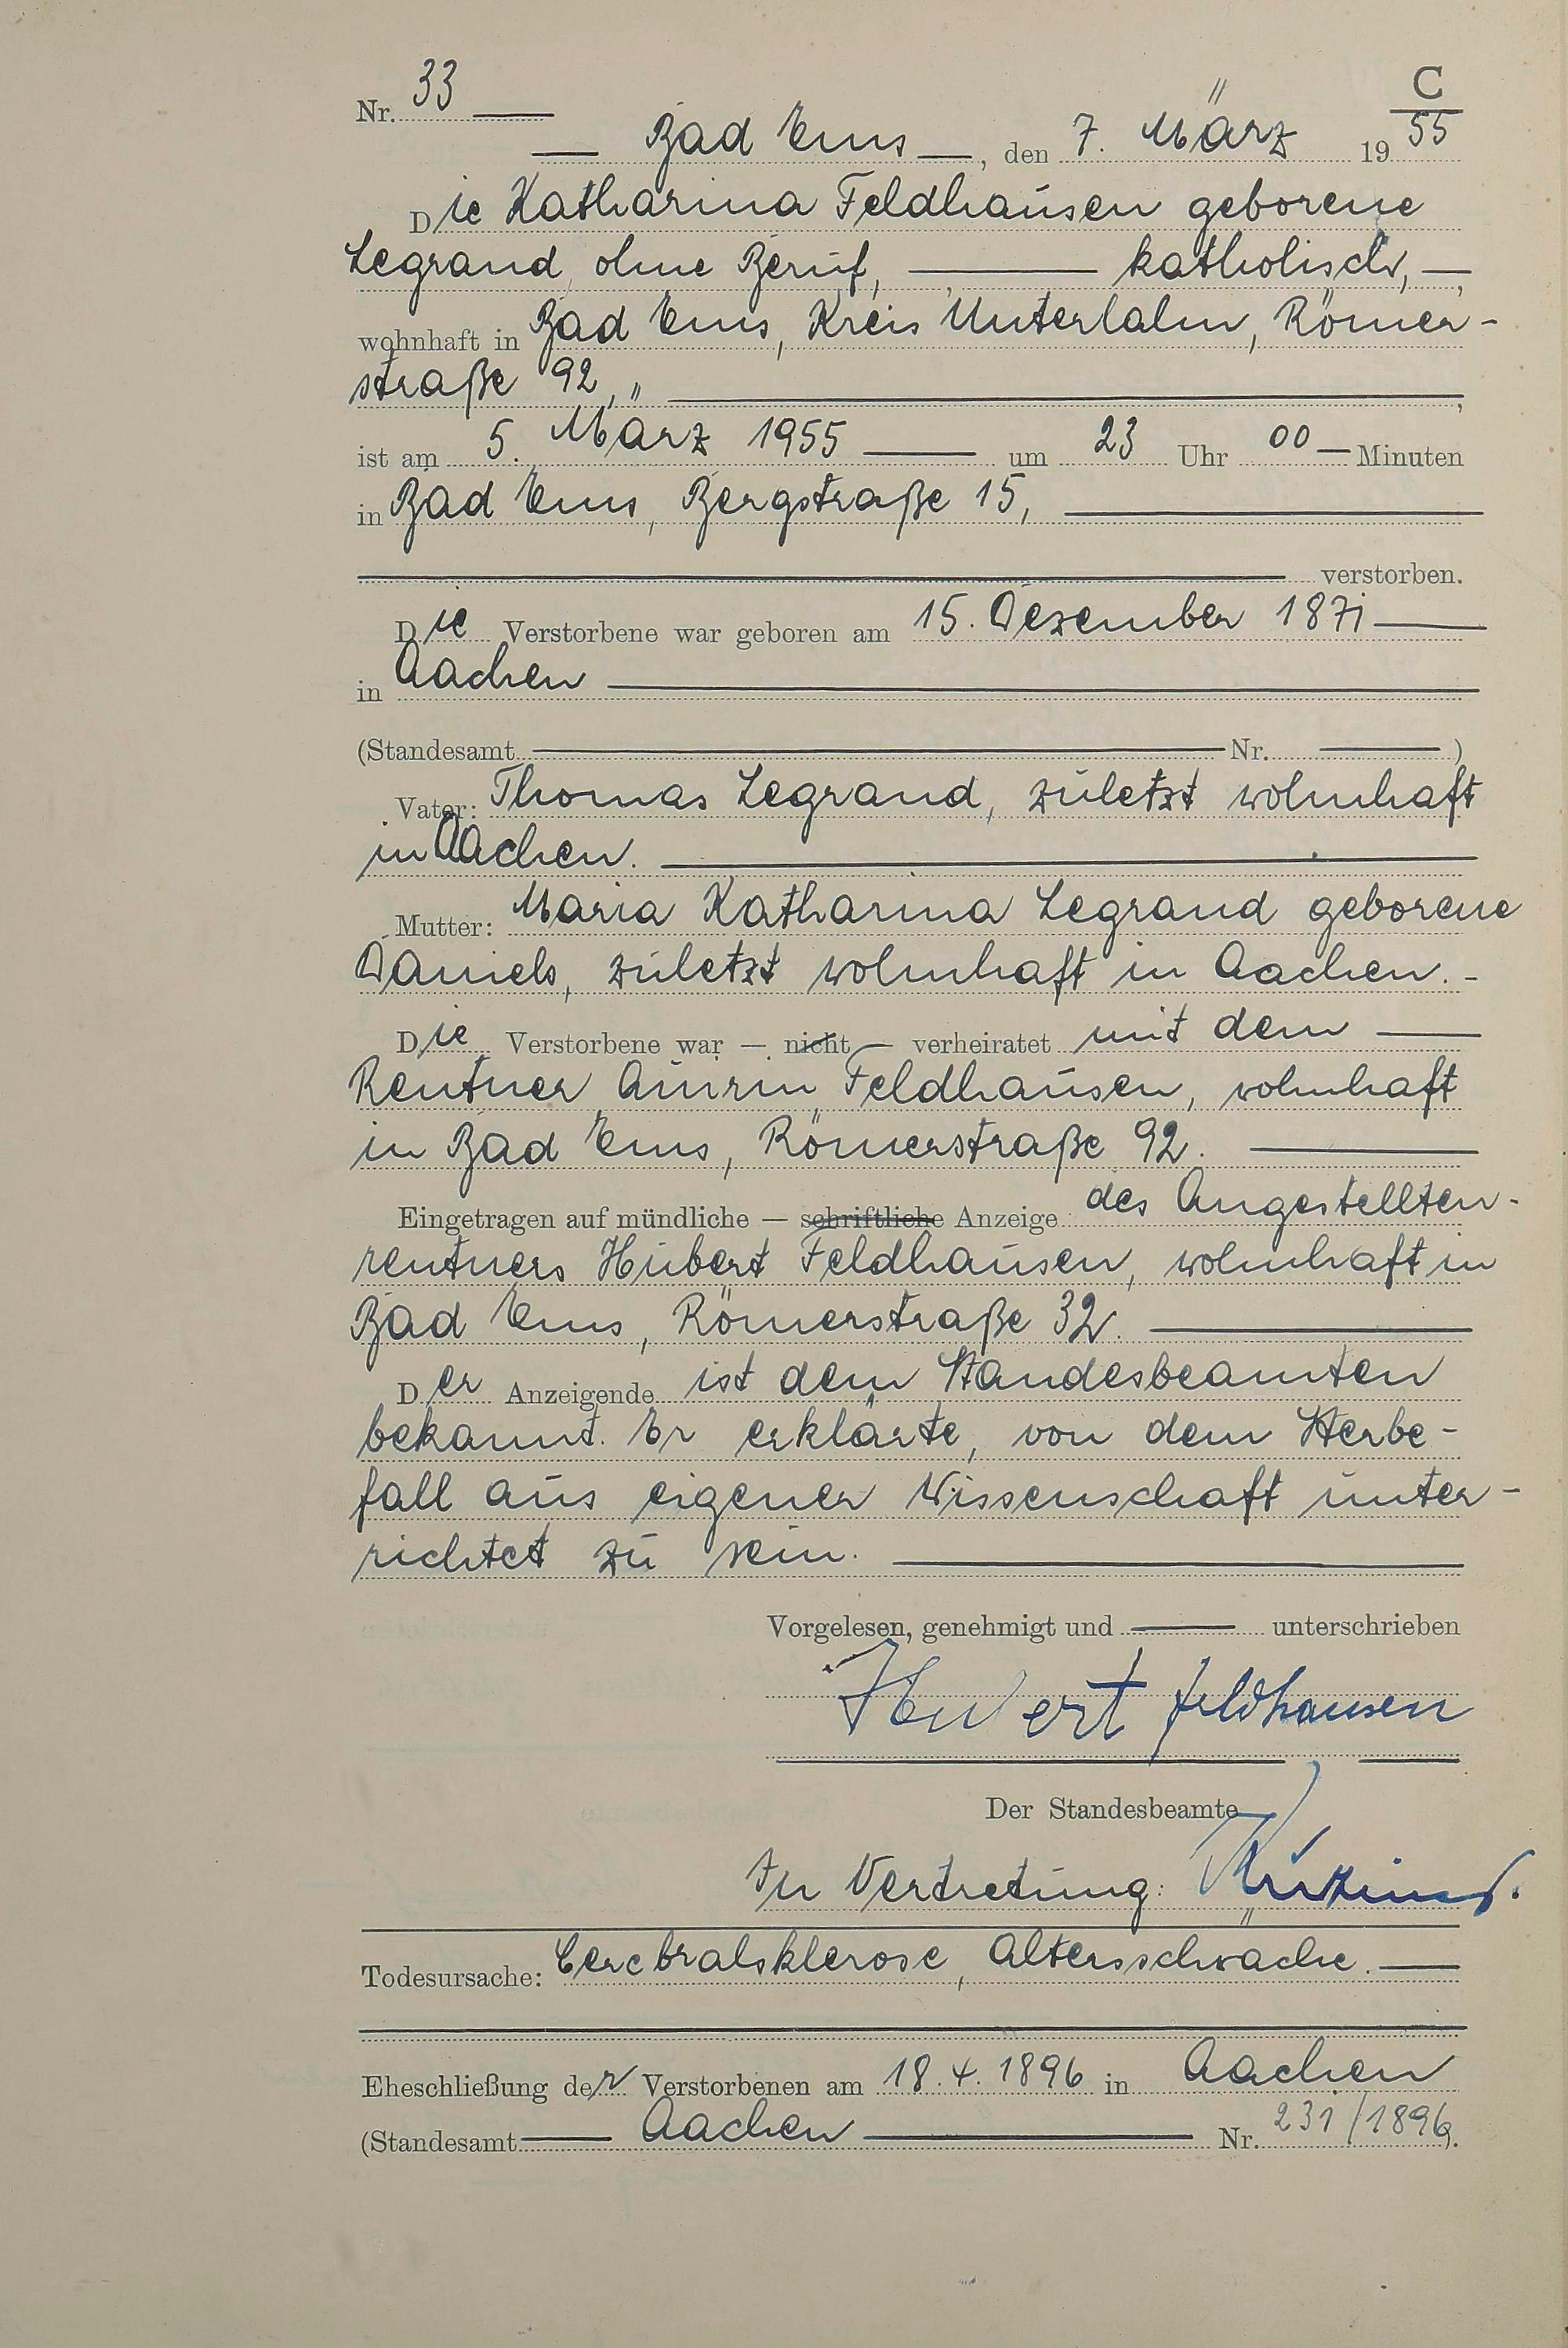 C
Nr. 33
Bad Ems, den 7. März 1955
Die Katharina Feldhausen geborene
Legrand, ohne Beruf, katholisch,
wohnhaft in Bad Ems, Kreis Unterlahn, Römer-
straße 92,
ist am 5. März 1955 um 23 Uhr 00 Minuten
in Bad Ems, Bergstraße 15,
verstorben.
Die Verstorbene war geboren am 15. Dezember 1871
in Aachen
(Standesamt Nr. )
Vater: Thomas Legrand, zuletzt wohnhaft
in Aachen.
Mutter: Maria Katharina Legrand geborene
Daniels, zuletzt wohnhaft in Aachen.
Die Verstorbene war — nicht — verheiratet mit dem
Rentner Feldhausen, wohnhaft
in Bad Ems, Römerstraße 92.
Eingetragen auf mündliche — schriftliche Anzeige des Angestellten-
rentners Hubert Feldhausen, wohnhaft in
Bad Ems, Römerstraße 32.
Der Anzeigende ist dem Standesbeamten
bekannt. Er erklärte, von dem Sterbe-
fall aus eigener Wissenschaft unter-
richtet zu sein.
Vorgelesen, genehmigt und unterschrieben
Hubert Feldhausen
Der Standesbeamte
In Vertretung:
Todesursache: Cerebralsklerose, Altersschwäche.
Eheschließung der Verstorbenen am 18.4.1896 in Aachen
(Standesamt Aachen Nr. 231/1896).